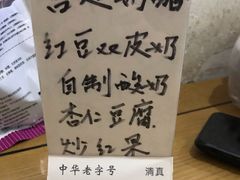 奶酪
红豆双皮奶
自制酸奶
杏仁豆腐
炒红果
中华老字号 清真